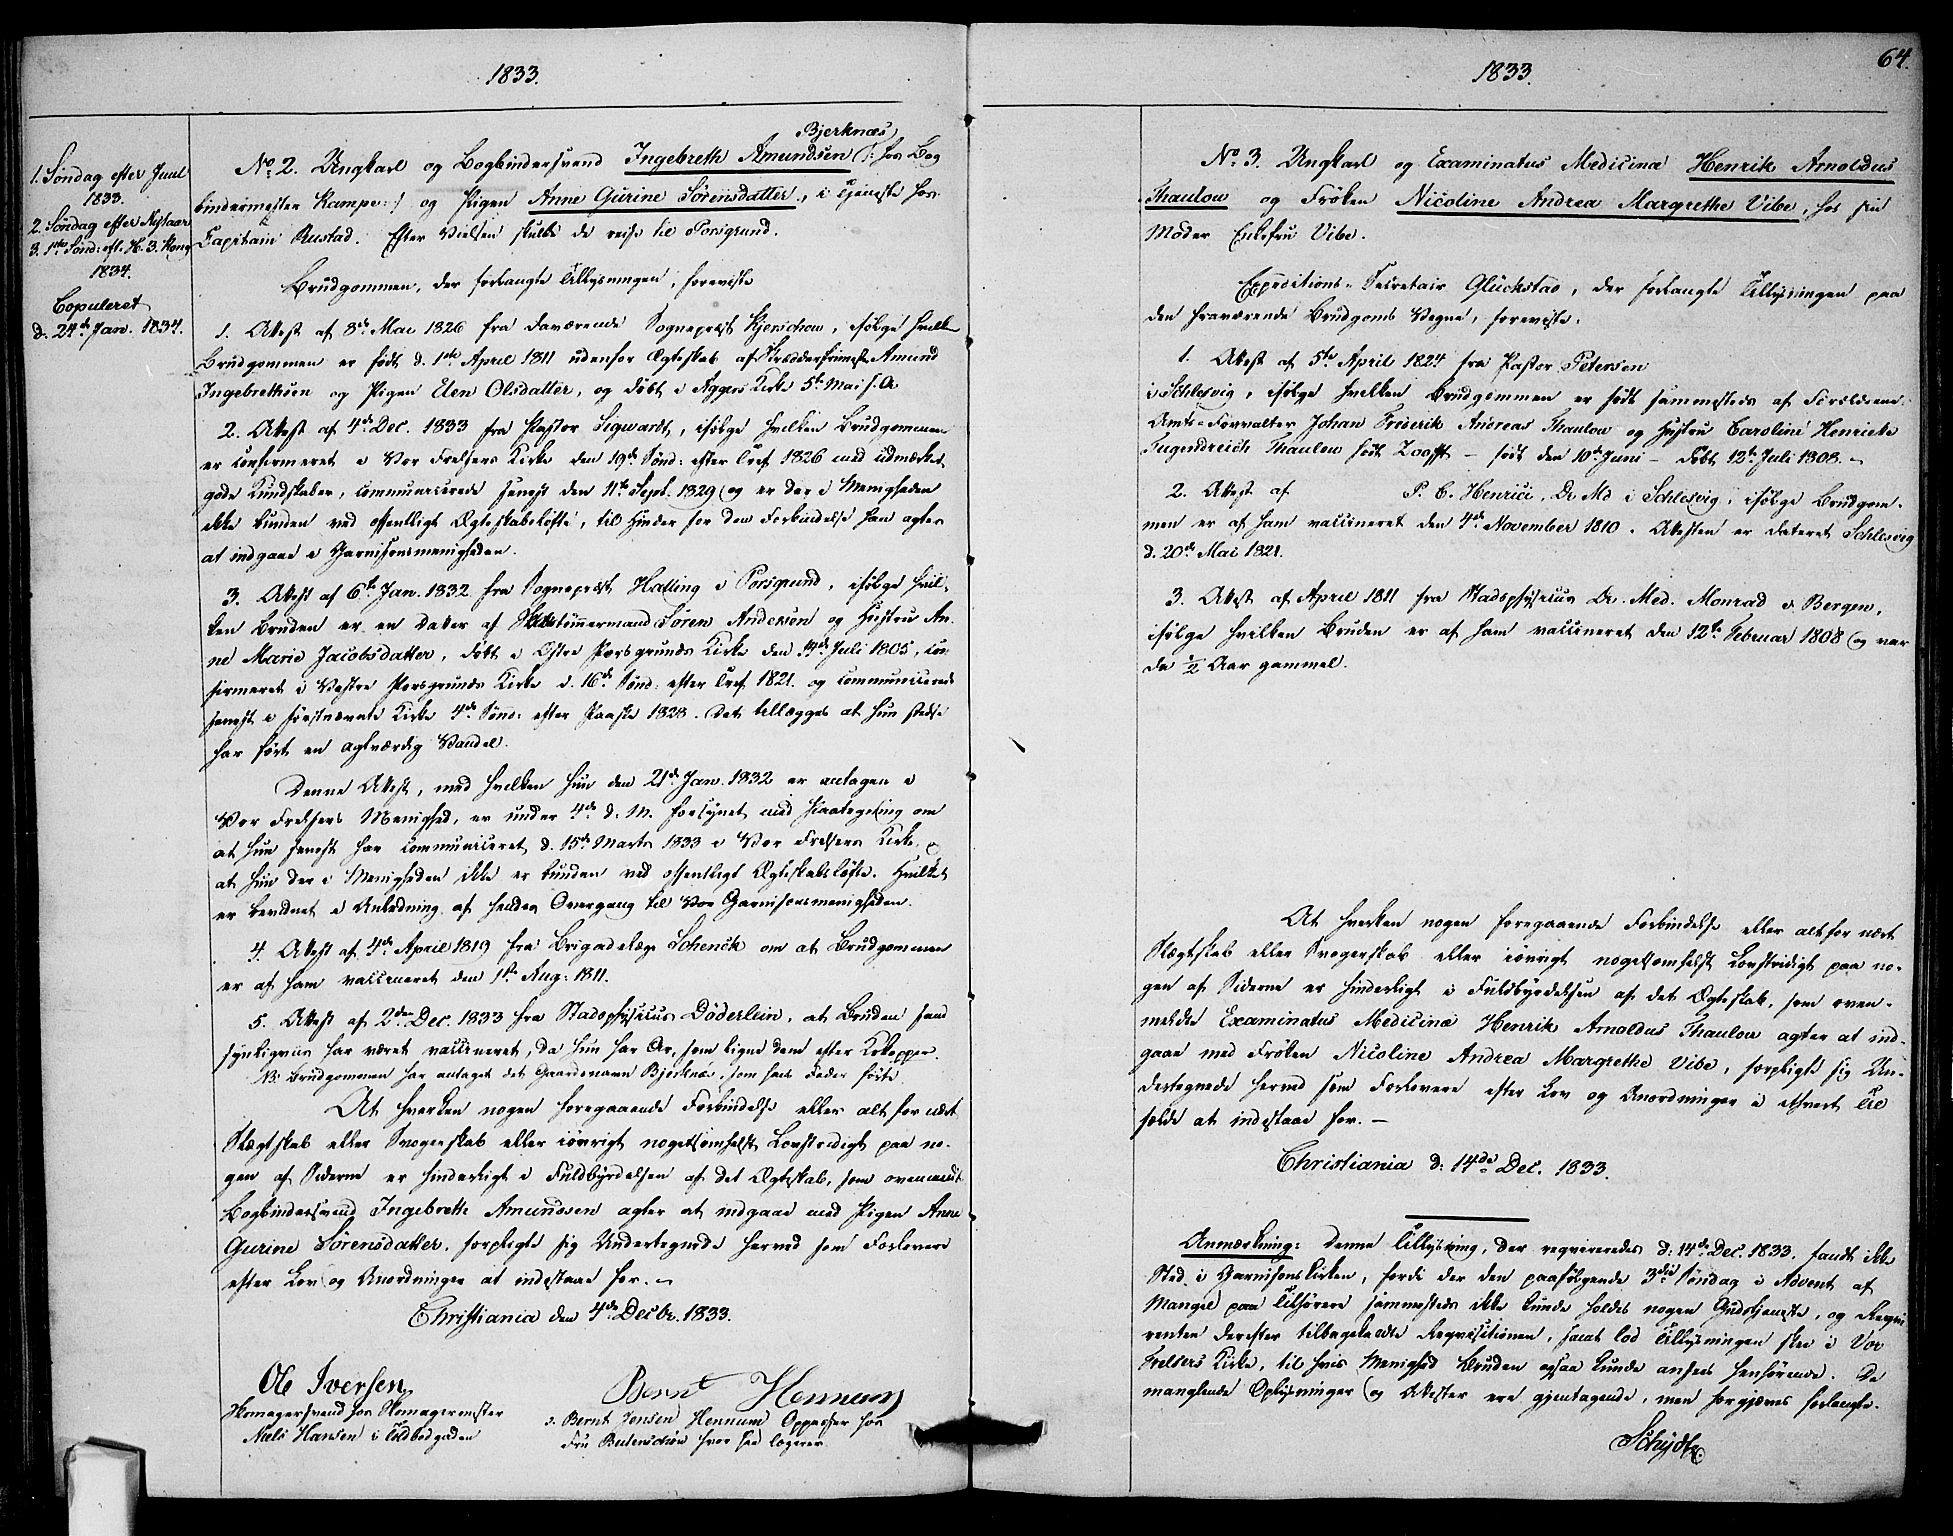 1833.
1. Söndag efter Juul
1833.
2. Søndag efter Nytaar
3. 1ste Sønd: eft. H. 3. Kong.
1834.
Copuleret
d. 24de Jan. 1834.
Bjerknæs
No. 2. Ungkarl og Bogbindersvend Ingebreth Amundsen (: hos Bog
bindermester Kampe :) og Pigen Anne Gurine Sørensdatter, i Tjeneste hos
Capitain Rustad. Efter Vielsen skulde de reise til Porsgrund.
Brudgommen, der forlangte Tillysningen, foreviste
1. Attest af 8de Mai 1826 fra daværende Sognepræst Kjerschow, ifølge hvilken
Brudgommen er født d. 1ste April 1811 udenfor Ægteskab af Skrædder Amund
Ingebrethsen og Pigen Elen Olsdatter, og døbt i Aggers Kirke 5te Mai s. A.
2. Attest af 4de Dec. 1833 fra Pastor Sigwardt, ifølge hvilken Brudgommen
er confirmeret i Vor Frelsers Kirke den 19de Sønd: efter Tref. 1826 med udmærket
gode Kundskaber, communicerede senest den 11te Sept. 1829 og er der i Menigheden
ikke bunden ved offentligt Ægteskabsløfte, til Hinder for den Forbindelse han agter
at indgaae i Garnisonsmenigheden.
3. Attest af 6te Jan. 1832 fra Sognepræst Halling i Porsgrund, ifølge hvil-
ken Bruden er en Datter af Skibstømmermand Søren Andersen og Hustru An-
ne Marie Jacobsdatter, døbt i Østre Porsgrunds Kirke den Juli 1805, con-
firmeret i Vestre Porsgrunds Kirke d. 16de Sønd: efter Tref. 1821. og communicerede
senest i førstnævnte Kirke 4de Sønd: efter Paaske 1828. Det tillægges at hun stedse
har ført en agtværdig Vandel.
Denne Attest, med hvilken hun den 21de Jan. 1832 er antagen i
Vor Frelsers Menighed, er under 4de d. M. forsynet med Paategning om
at hun senest har communiceret d. 15de Marts 1833 i Vor Frelsers Kirke, og
at hun der i Menigheden ikke er bunden ved offentligt Ægteskabsløfte. Hvilket
er bevidnet i Anledning af hendes Overgang til Vor Garnisonsmenigheden.
4. Attest af 4de April 1819 fra Brigadelæge Schenck om at Brudgommen
er af ham vaccineret den 1ste Aug: 1811.
5. Attest af 2den Dec. 1833 fra Stadsphysicus Döderlein, at Bruden sand
synligviis har været vaccineret, da hun har Ar, som ligne dem efter Kokopper.
NB. Brudgommen har antaget det Gaardsnavn Bjerknæs, som hans Fader førte.
At hverken nogen foregaaende Forbindelse eller alt for nært
Slægtskab eller Svogerskab eller iøvrigt nogetsomhelst Lovstridigt paa no-
gen af Siderne er hinderligt i Fuldbyrdelsen af det Ægteskab, som ovenmeldte
Bogbindersvend Ingebreth Amundsen agter at indgaae med Pigen Anne
Gurine Sørensdatter, forpligte sig Undertegnede herved som Forlovere
efter Lov og Anordninger at indestaae for.
Christiania den 4de Decbr. 1833.
Ole Iversen
Homagersvend hos Homagermester
Niels Hansen i Toldbodgaden
Bernt Hennum
o: Bernt Jensen Hennum Oppasser hos
Fru Butenschøn hvor han logerer
1833.
64.
No. 3. Ungkarl og Examinatus Medicinæ Henrik Arnoldus
Thaulow og Frøken Nicoline Andrea Margrethe Vibe, hos sin
Moder Enkefru Vibe.
Expeditions-Secretair Glückstad, der forlangte Tillysningen paa
den fraværende Brudgoms Vegne, foreviste:
1. Attest af 5te April 1824 fra Pastor Petersen
i Schlesvig, ifølge hvilken Brudgommen er født sammesteds af Forældrene:
Amts-Forvalter Johan Frederik Andreas Thaulow og Hustru Caroline Henriette
Tugendreich Thaulow født Zoofft – født den 10de Juni – døbt 12te Juli 1808.
2. Attest af P. C. Henrici, Dr. Md i Schlesvig, ifølge Brudgom-
men er af ham vaccineret den 4de November 1810. Attesten er dateret Schlesvig
d. 20de Mai 1821.
3. Attest af April 1811 fra Stadsphysicus Dr. Med. Monrad i Bergen,
ifølge hvilken Bruden er af ham vaccineret den 12te Februar 1808 og var
da 1/2 Aar gammel.
At hverken nogen foregaaende Forbindelse eller altfor nært
Slægtskab eller Svogerskab eller iøvrigt nogetsomhelst Lovstridigt paa no-
gen af Siderne er hinderligt i Fuldbyrdelsen af det Ægteskab, som oven-
meldte Examinatus Medicinæ Henrik Arnoldus Thaulow agter at ind-
gaae med Frøken Nicoline Andrea Margrethe Vibe, forpligte sig Un-
dertegnede herved som Forlovere efter Lov og Anordninger i ethvert Til
fælde at indestaae for. –
Christiania d: 14de Dec. 1833.
Anmærkning: Denne Tillysning, der requireredes d: 14de Dec. 1833. fandt ikke
Sted i Garnisonskirken, fordi der den paafølgende 3die Søndag i Advent af
Mangel paa Tilhørere sammesteds ikke kunde holdes nogen Gudstjeneste, og Reqvi
renten derefter tilbagekaldte Reqvisitionen, samt lod Tillysningen skee i Vor
Frelsers Kirke, til hvis Menighed Bruden ogsaa kunde ansees henhørende. De
manglende Oplysninger og Attester ere gjentagende, men forgjæves forlangte.